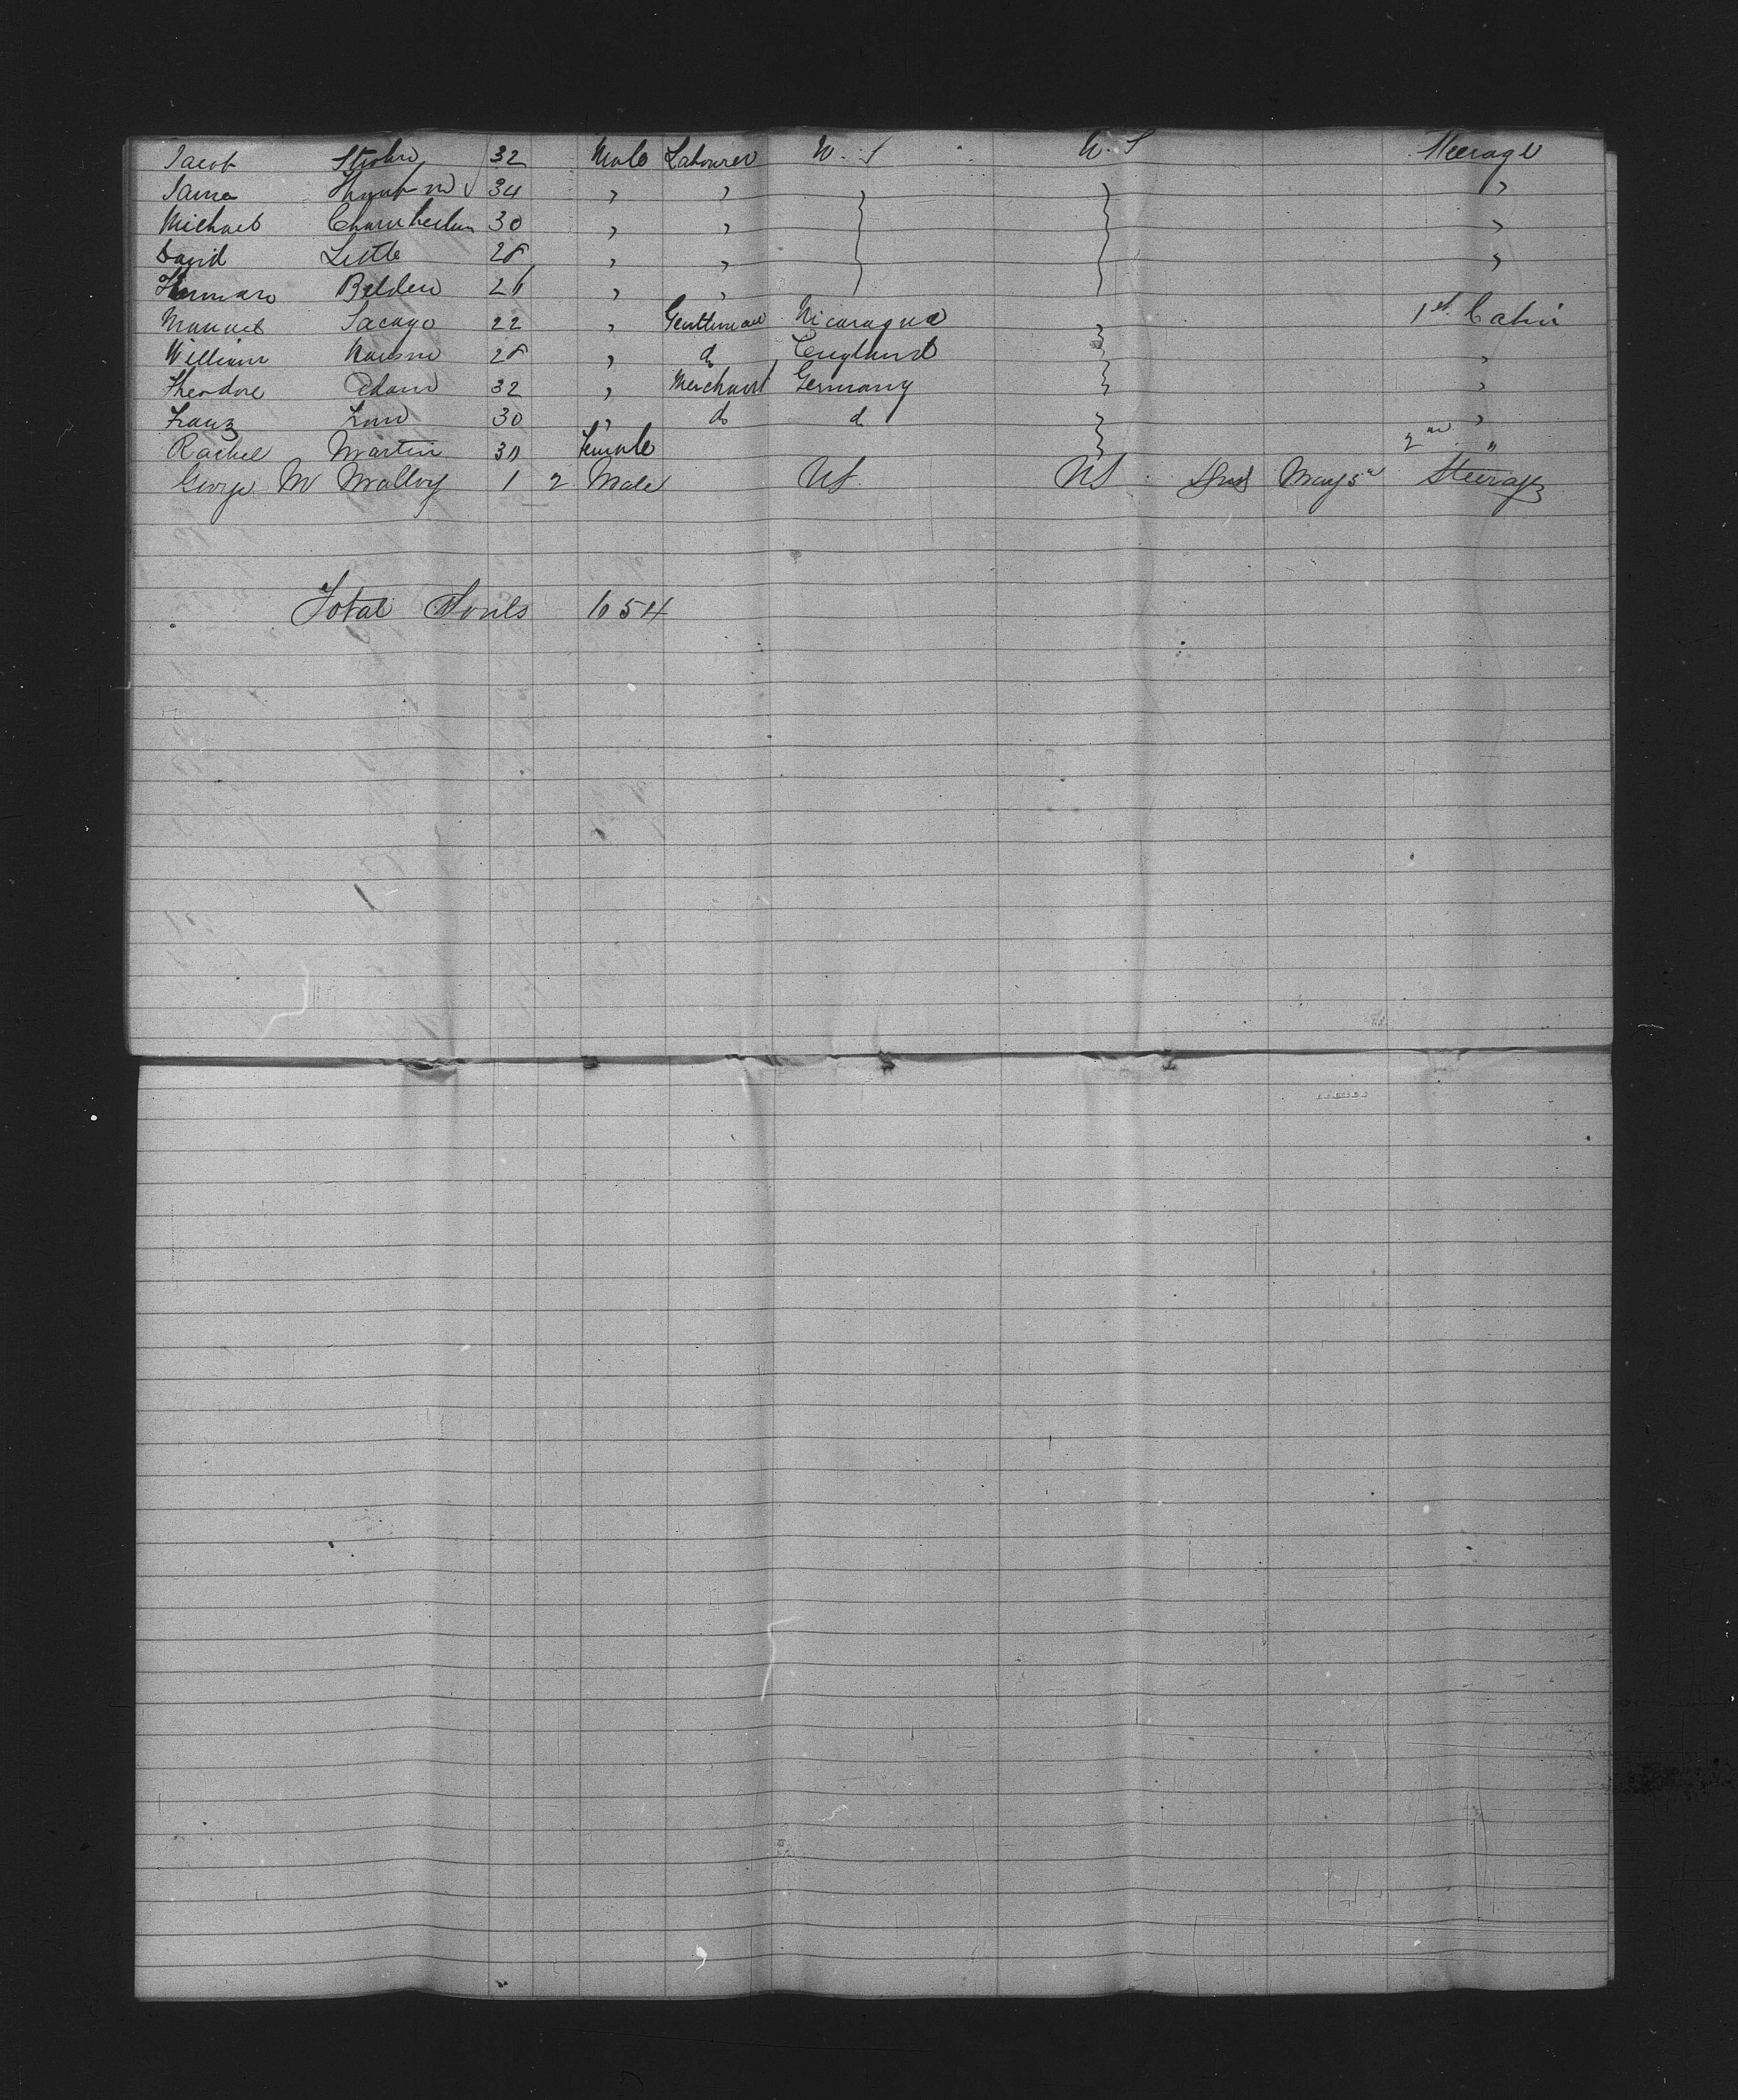 Jacob Strohn 32 Male Labourer U. S U. S Steerage
James 34 " " "
Michael Chamberlain 30 " " "
David Little 28 " " "
Herman Belden 26 " "
Manuel Sacayo 22 " Gentleman Nicaragua 1st Cabin
William 28 " do England "
Theodore Adam 32 " Merchant Germany "
Franz 30 " do do "
Rachel Martin 30 Female 2nd "
George M Malloy 1 2 Male US US Died May 5th Steerage
Total Souls 654